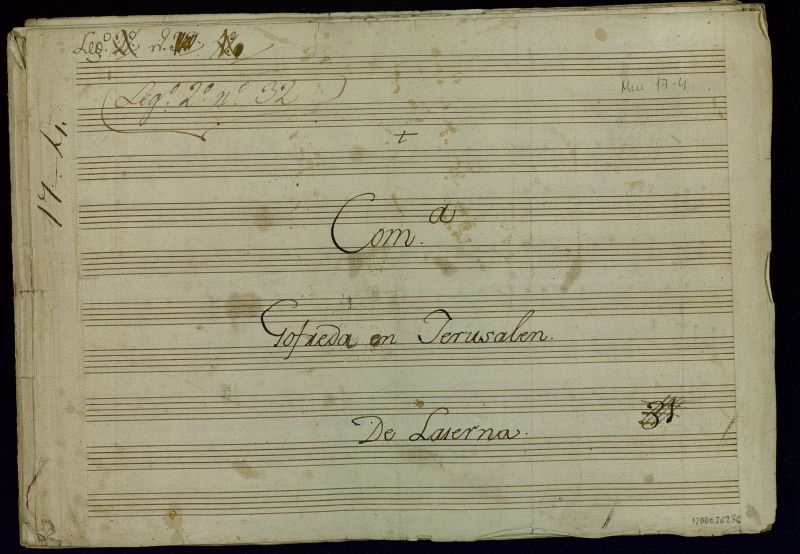 Leg.º 2.º n.º
(Leg.º 2.º n.º 32)
Mus 17-4
+
17-4.
Com.a
Gofreda en Jerusalen.
De Laserna.
31
1200026286